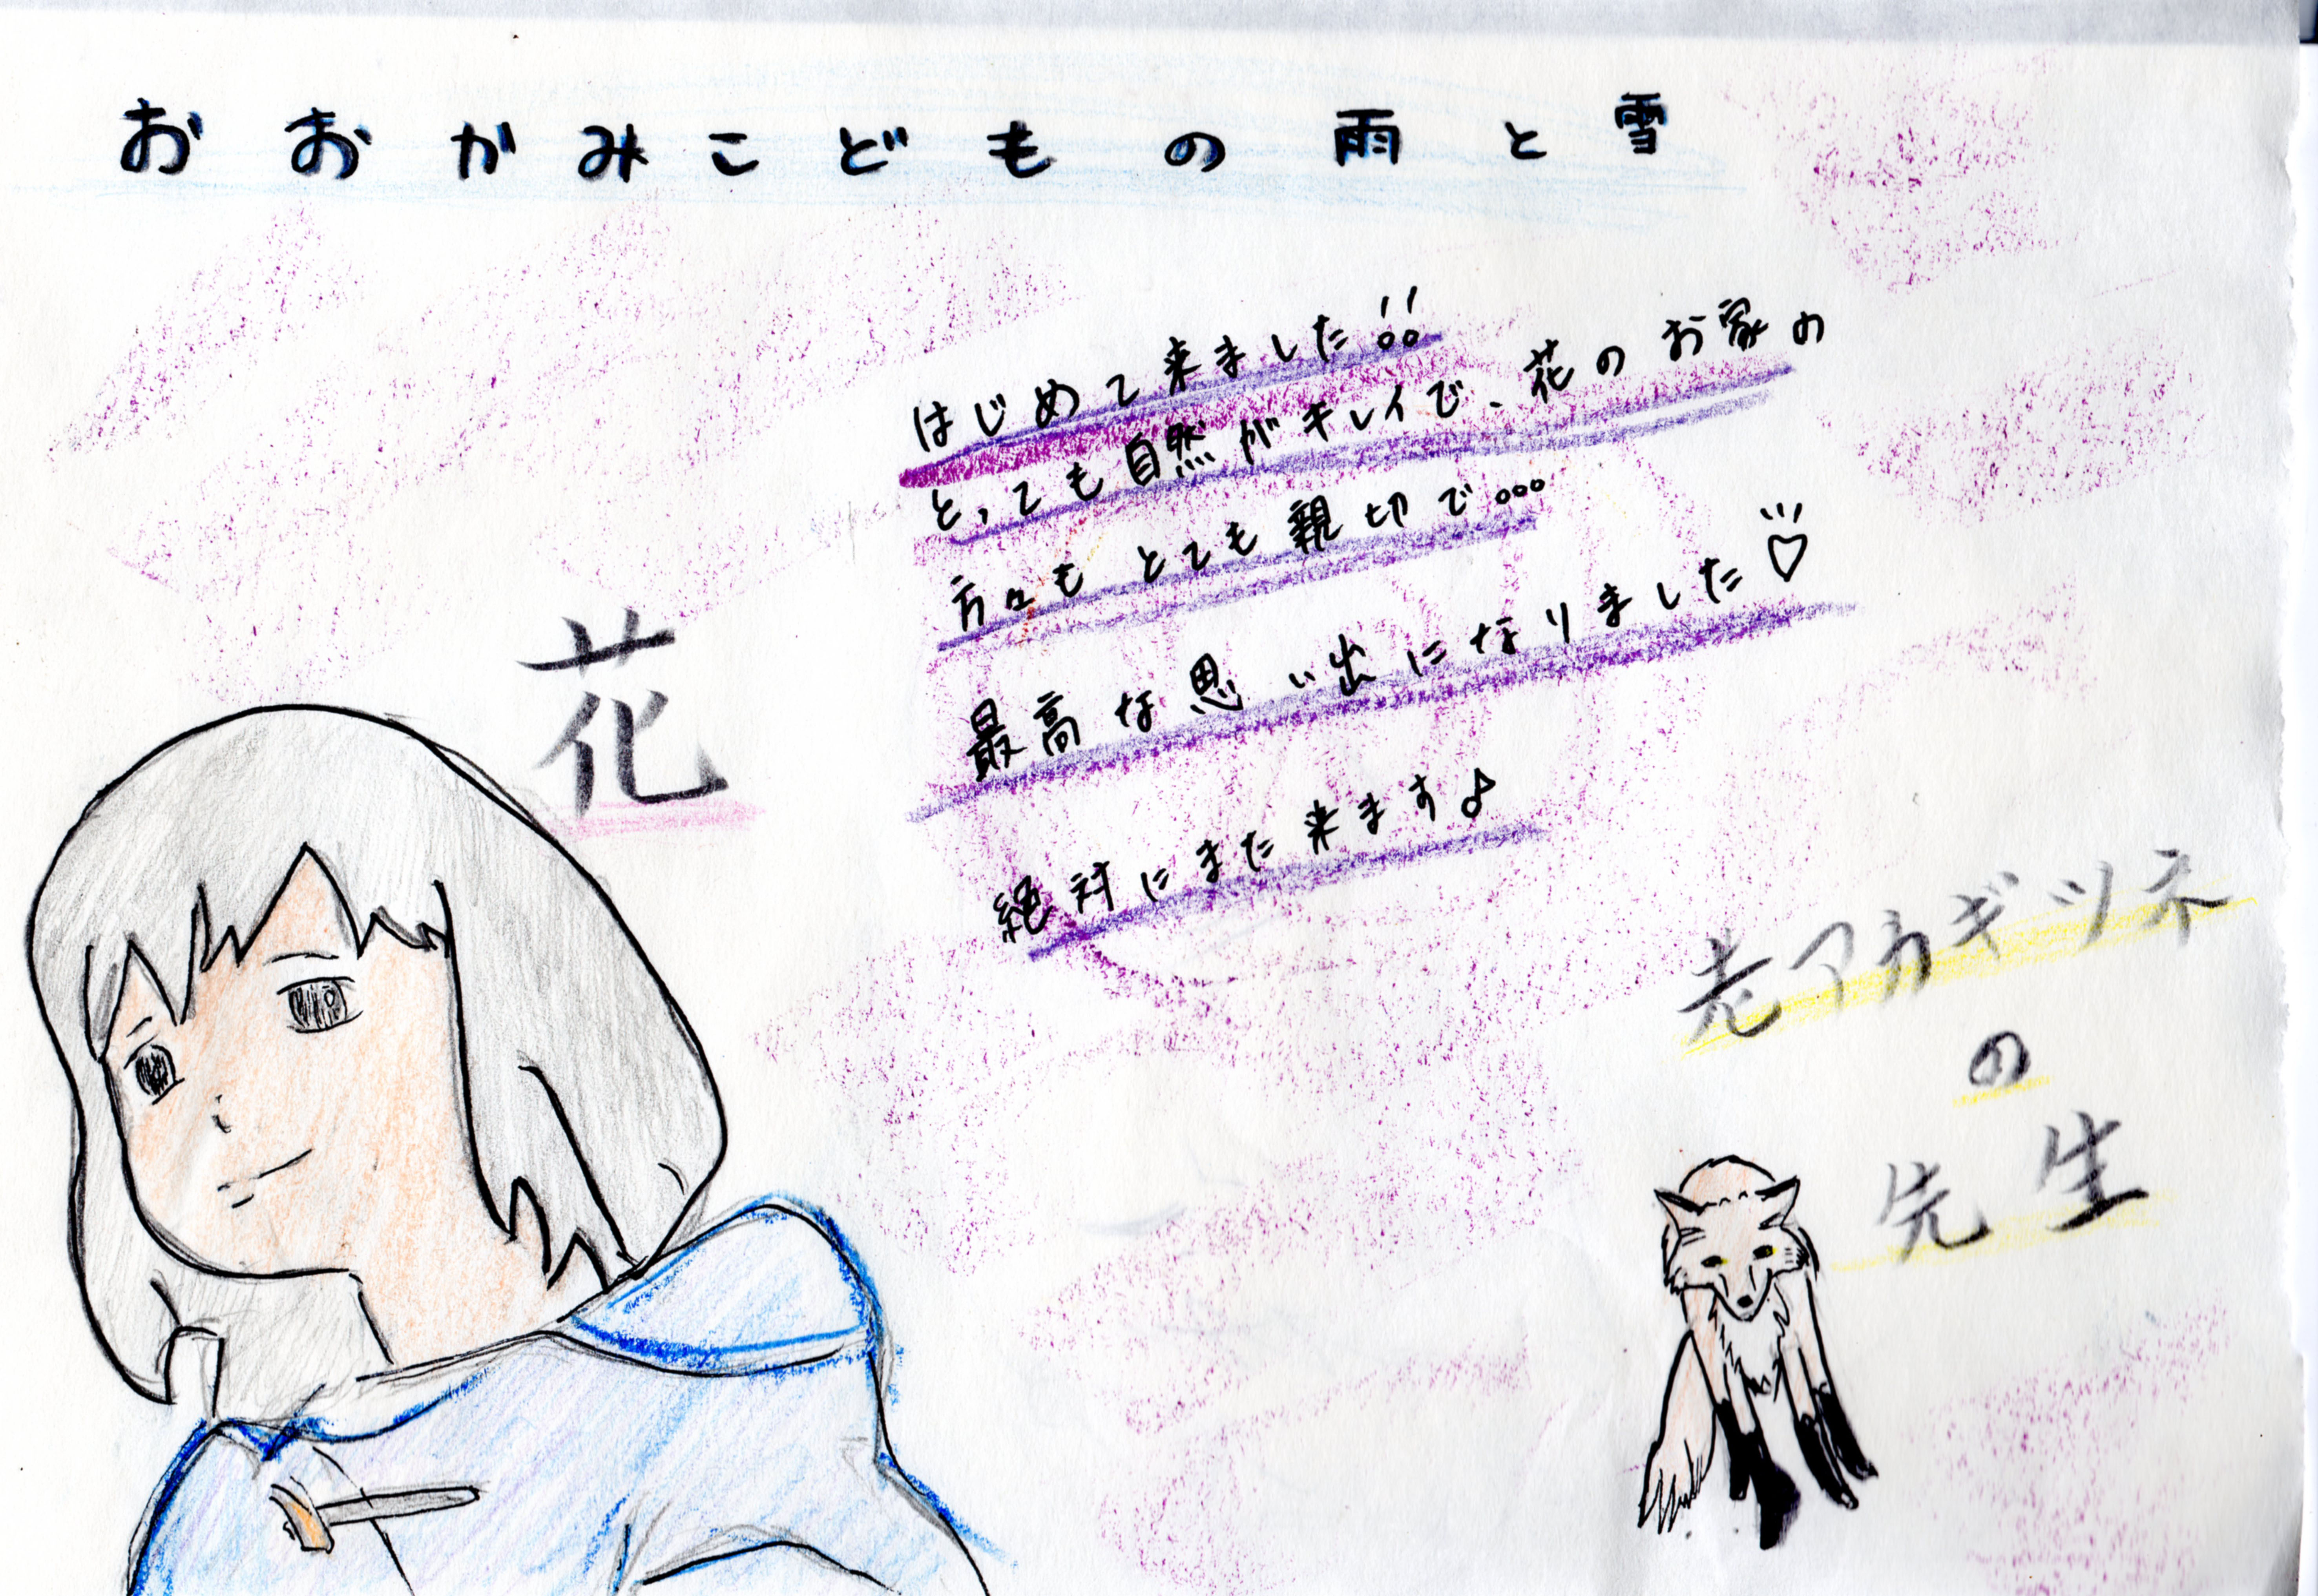 おおかみこどもの雨と雪
はじめて来ました!!
とっても自然がキレイで、花のお家の
方々もとても親切で...
最高な思い出になりました♡
絶対にまた来ます♪
花
老アカギツネ
の
先生